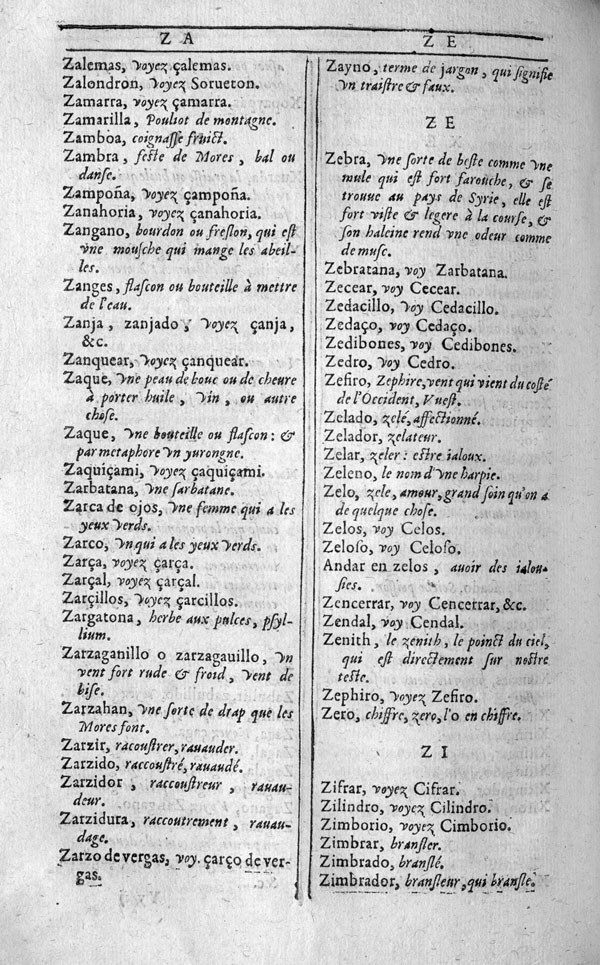 Z A
Zalemas, voyez çalemas.
Zalondron, voyez Sorueton.
Zamarra, voyez çamarra.
Zamarilla, Pouliot de montagne.
Zamboa, coignasse fruict.
Zambra, feste de Mores, bal ou
danse.
Zampoña, voyez çampoña.
Zanahoria, voyez çanahoria.
Zangano, bourdon ou freslon, qui est
vne mousche qui mange les abeil-
les.
Zanges, flascon ou bouteille à mettre
de l'eau.
Zanja, zanjado, voyez çanja,
&c.
Zanquear, voyez çanquear.
Zaque, vne peau de bouc ou de cheure
à porter huile, vin, ou autre
chose.
Zaque, vne bouteille ou flascon: &
par metaphore vn yurongne.
Zaquiçami, voyez çaquiçami.
Zarbatana, vne sarbatane.
Zarca de ojos, vne femme qui a les
yeux verds.
Zarco, vn qui a les yeux verds.
Zarça, voyez çarça.
Zarçal, voyez çarçal.
Zarçillos, voyez çarcillos.
Zargatona, herbe aux pulces, psyl-
lium.
Zarzaganillo o zarzagauillo, vn
vent fort rude & froid, vent de
bise.
Zarzahan, vne sorte de drap que les
Mores font.
Zarzir, racoustrer, rauauder.
Zarzido, raccoustré, rauaudé.
Zarzidor, raccoustreur, rauau-
deur.
Zarzidura, raccoutrement, rauau-
dage.
Zarzo de vergas, voy. çarço de ver-
gas.
Z E
Zayno, terme de jargon, qui signifie
vn traistre & faux.
Z E
Zebra, vne sorte de beste comme vne
mule qui est fort farouche, & se
trouue au pays de Syrie, elle est
fort viste & legere à la course, &
son haleine rend vne odeur comme
de musc.
Zebratana, voy Zarbatana.
Zecear, voy Cecear.
Zedacillo, voy Cedacillo.
Zedaço, voy Cedaço.
Zedibones, voy Cedibones.
Zedro, voy Cedro.
Zefiro, Zephire, vent qui vient du costé
de l'Occident, Vuest.
Zelado, zelé, affectionné.
Zelador, zelateur.
Zelar, zeler: estre ialoux.
Zeleno, le nom d'vne harpie.
Zelo, zele, amour, grand soin qu'on a
de quelque chose.
Zelos, voy Celos.
Zeloso, voy Celoso.
Andar en zelos, auoir des ialou-
sies.
Zencerrar, voy Cencerrar, &c.
Zendal, voy Cendal.
Zenith, le zenith, le poinct du ciel,
qui est directement sur nostre
teste.
Zephiro, voyez Zefiro.
Zero, chiffre, zero, l'o en chiffre.
Z I
Zifrar, voyez Cifrar.
Zilindro, voyez Cilindro.
Zimborio, voyez Cimborio.
Zimbrar, bransler.
Zimbrado, branslé.
Zimbrador, bransleur, qui bransle.